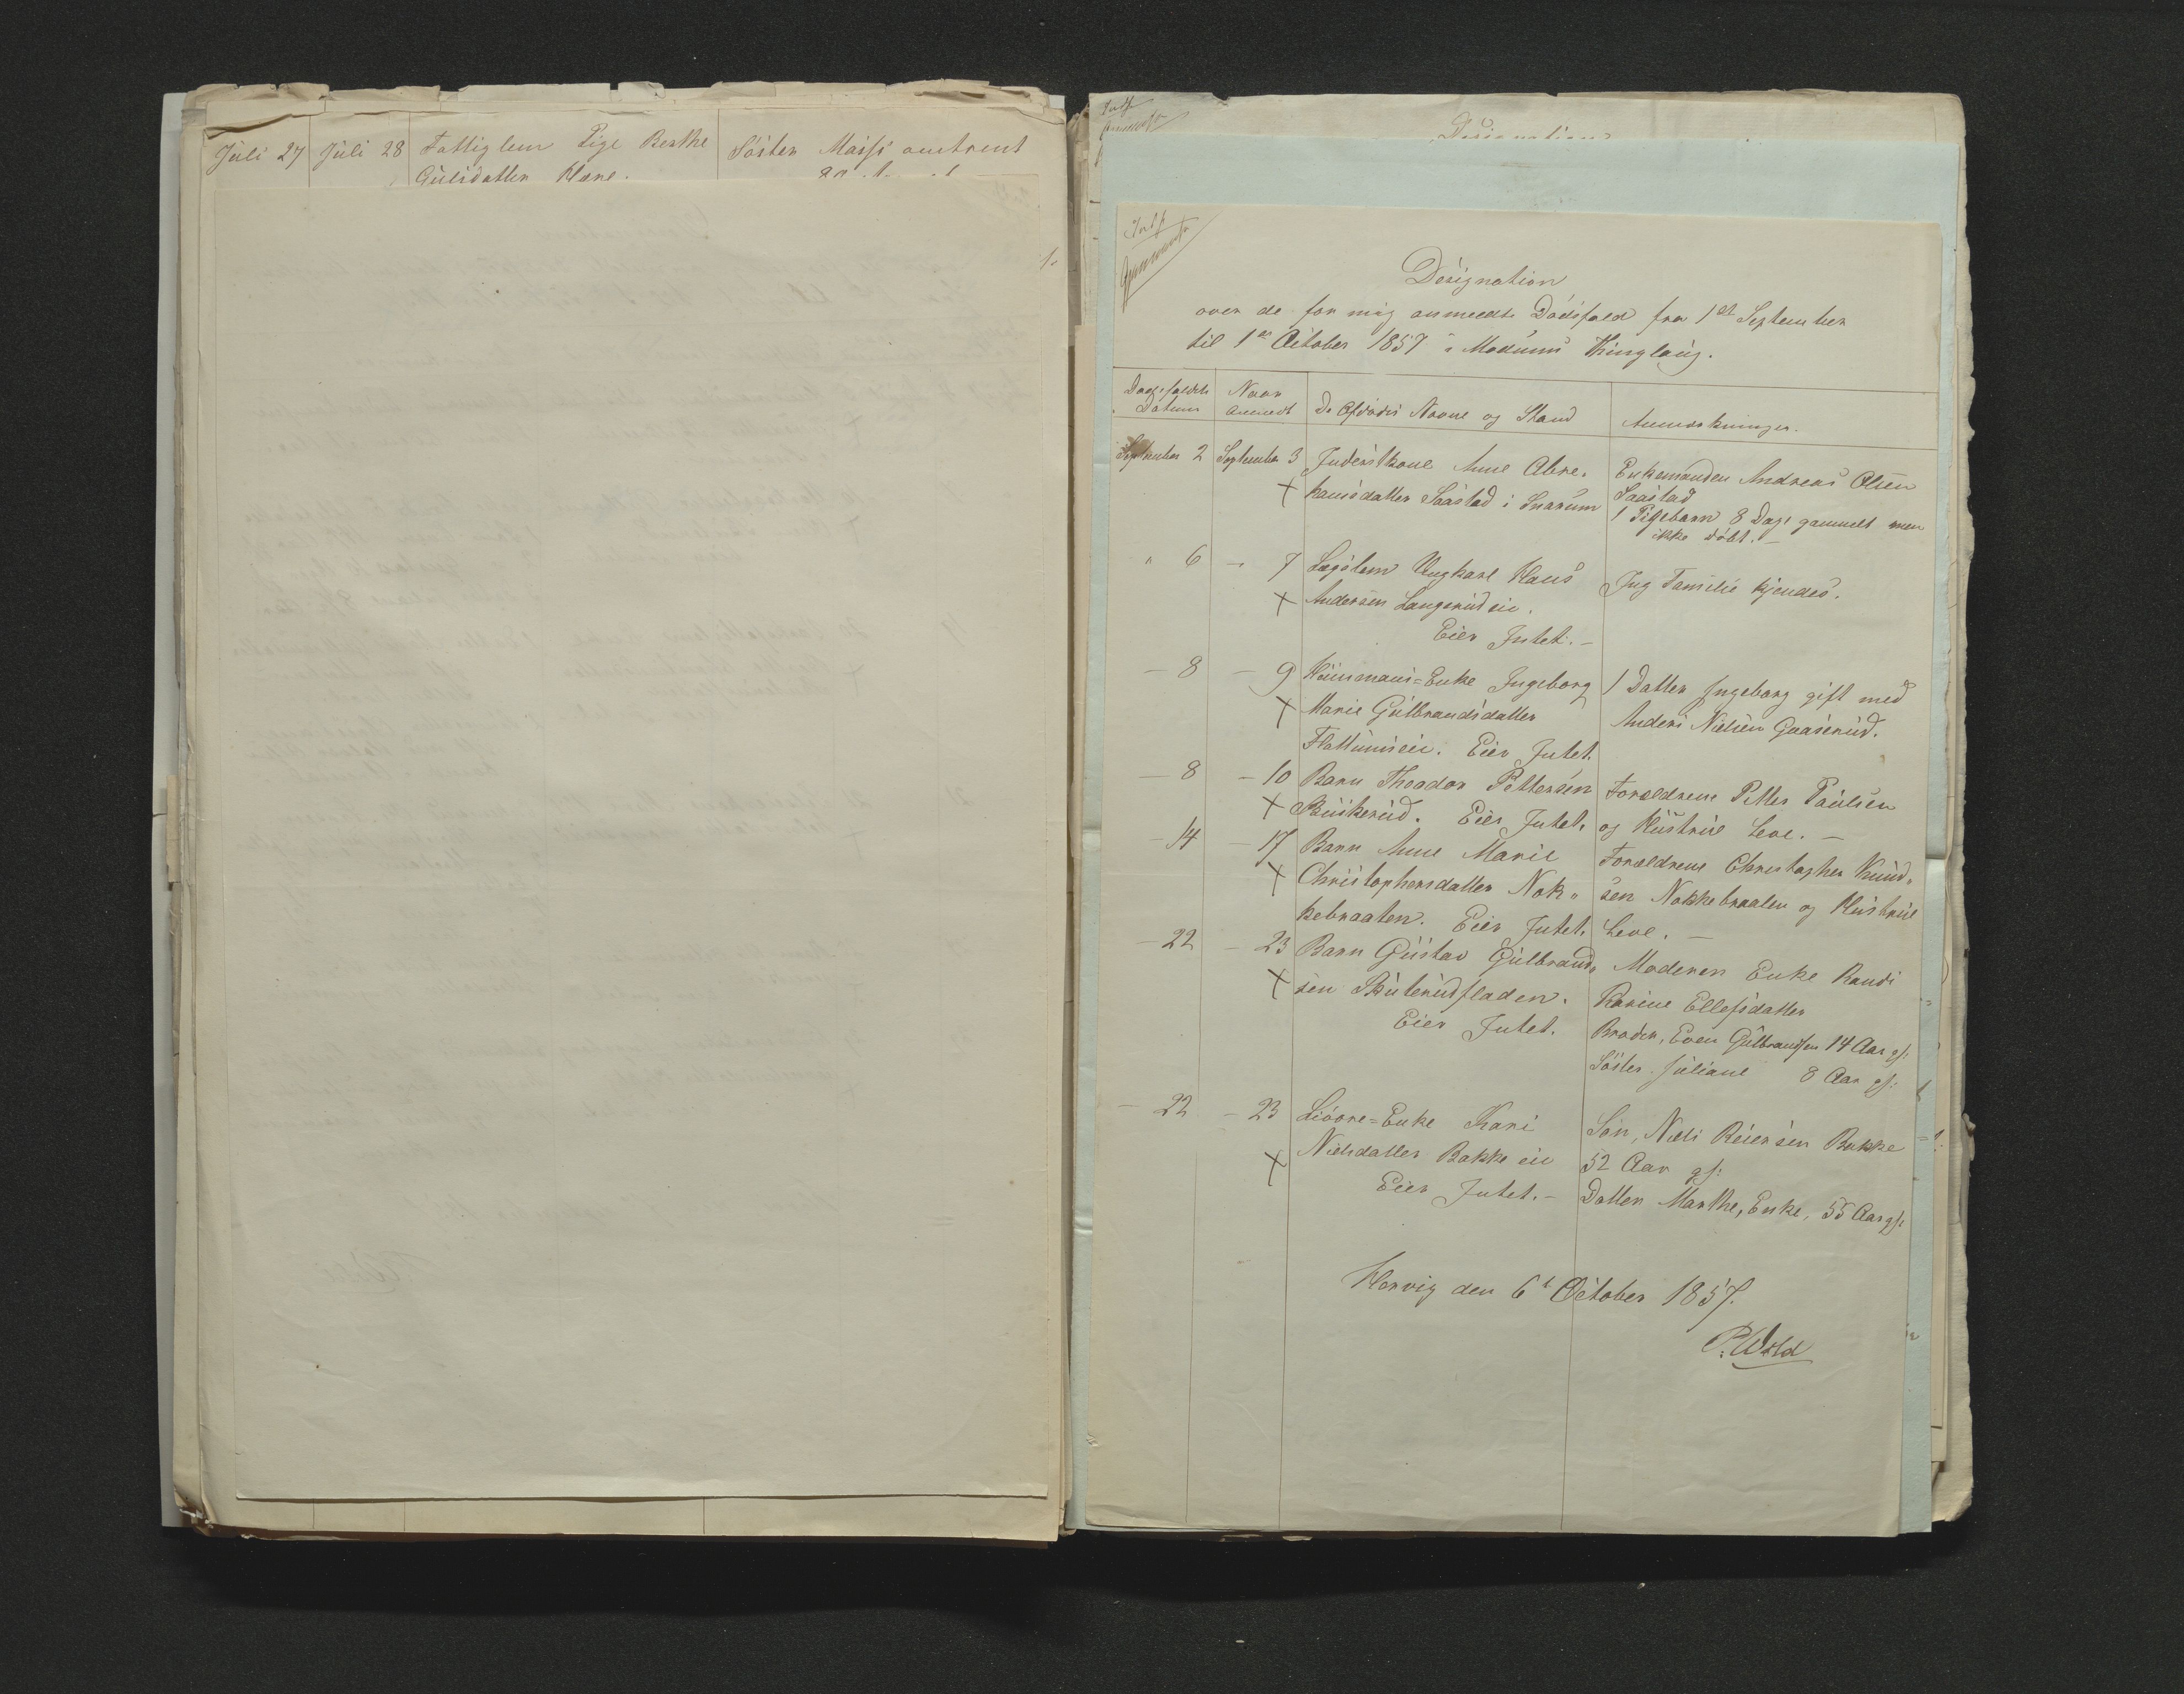 Juli 27 Juli 28 Fattiglem Pige Berthe Söster Maisi omtrent
Gulsdatter
Designation
Designation
over de for mig anmeldte Dödsfald fra 1st September
til 1st October 1857 i Modums Thinglaug.
Dødsfaldets Datum Naar anmeldt De Afdødes Navne og Stand Anmærkninger.
September 2 September 3 Inderstkone Anne Abra- Enkemanden Andreas Olsen
hamsdatter Saastad i Snarum Saastad
1 Pigebarn 8 Dage gammelt men
ikke döbt. –
" 6 – 7 Lægslem Ungkarl Hans Ing Familie kjendes.
Andersen Langerud eie.
Eier Intet. –
– 8 – 9 Huusmans-Enke Ingeborg 1 Datter Ingeborg gift med
Marie Gulbrandsdatter Anders Nielsen Gaaserud.
Flattumseie. Eier Intet.
– 8 – 10 Barn Theodor Pettersen Forældrene Petter Paulsen
Buskerud. Eier Intet. og Hustrue Leve. –
– 14 – 17 Barn Anne Marie Forældrene Christopher Knud-
Christophersdatter Nok- sen Nokkebraaten og Hustrue
kebraaten. Eier Intet. Leve. –
– 22 – 23 Barn Gustav Gulbrand- Moderen Enke Randi
sen Skuterudfladen. Karine Ellefsdatter
Eier Intet. Broder, Even Gulbrandsen 14 Aar gl:
Söster Juliane 8 Aar gl:
– 22 – 23 Liøore-Enke Kari Sön, Niels Reiersen Bakke
Nielsdatter Bakke eie 52 Aar gl:
Eier Intet. – Datter Marthe, Enke, 55 Aar gl:
Hervig den 6t October 1857.
P. Wold